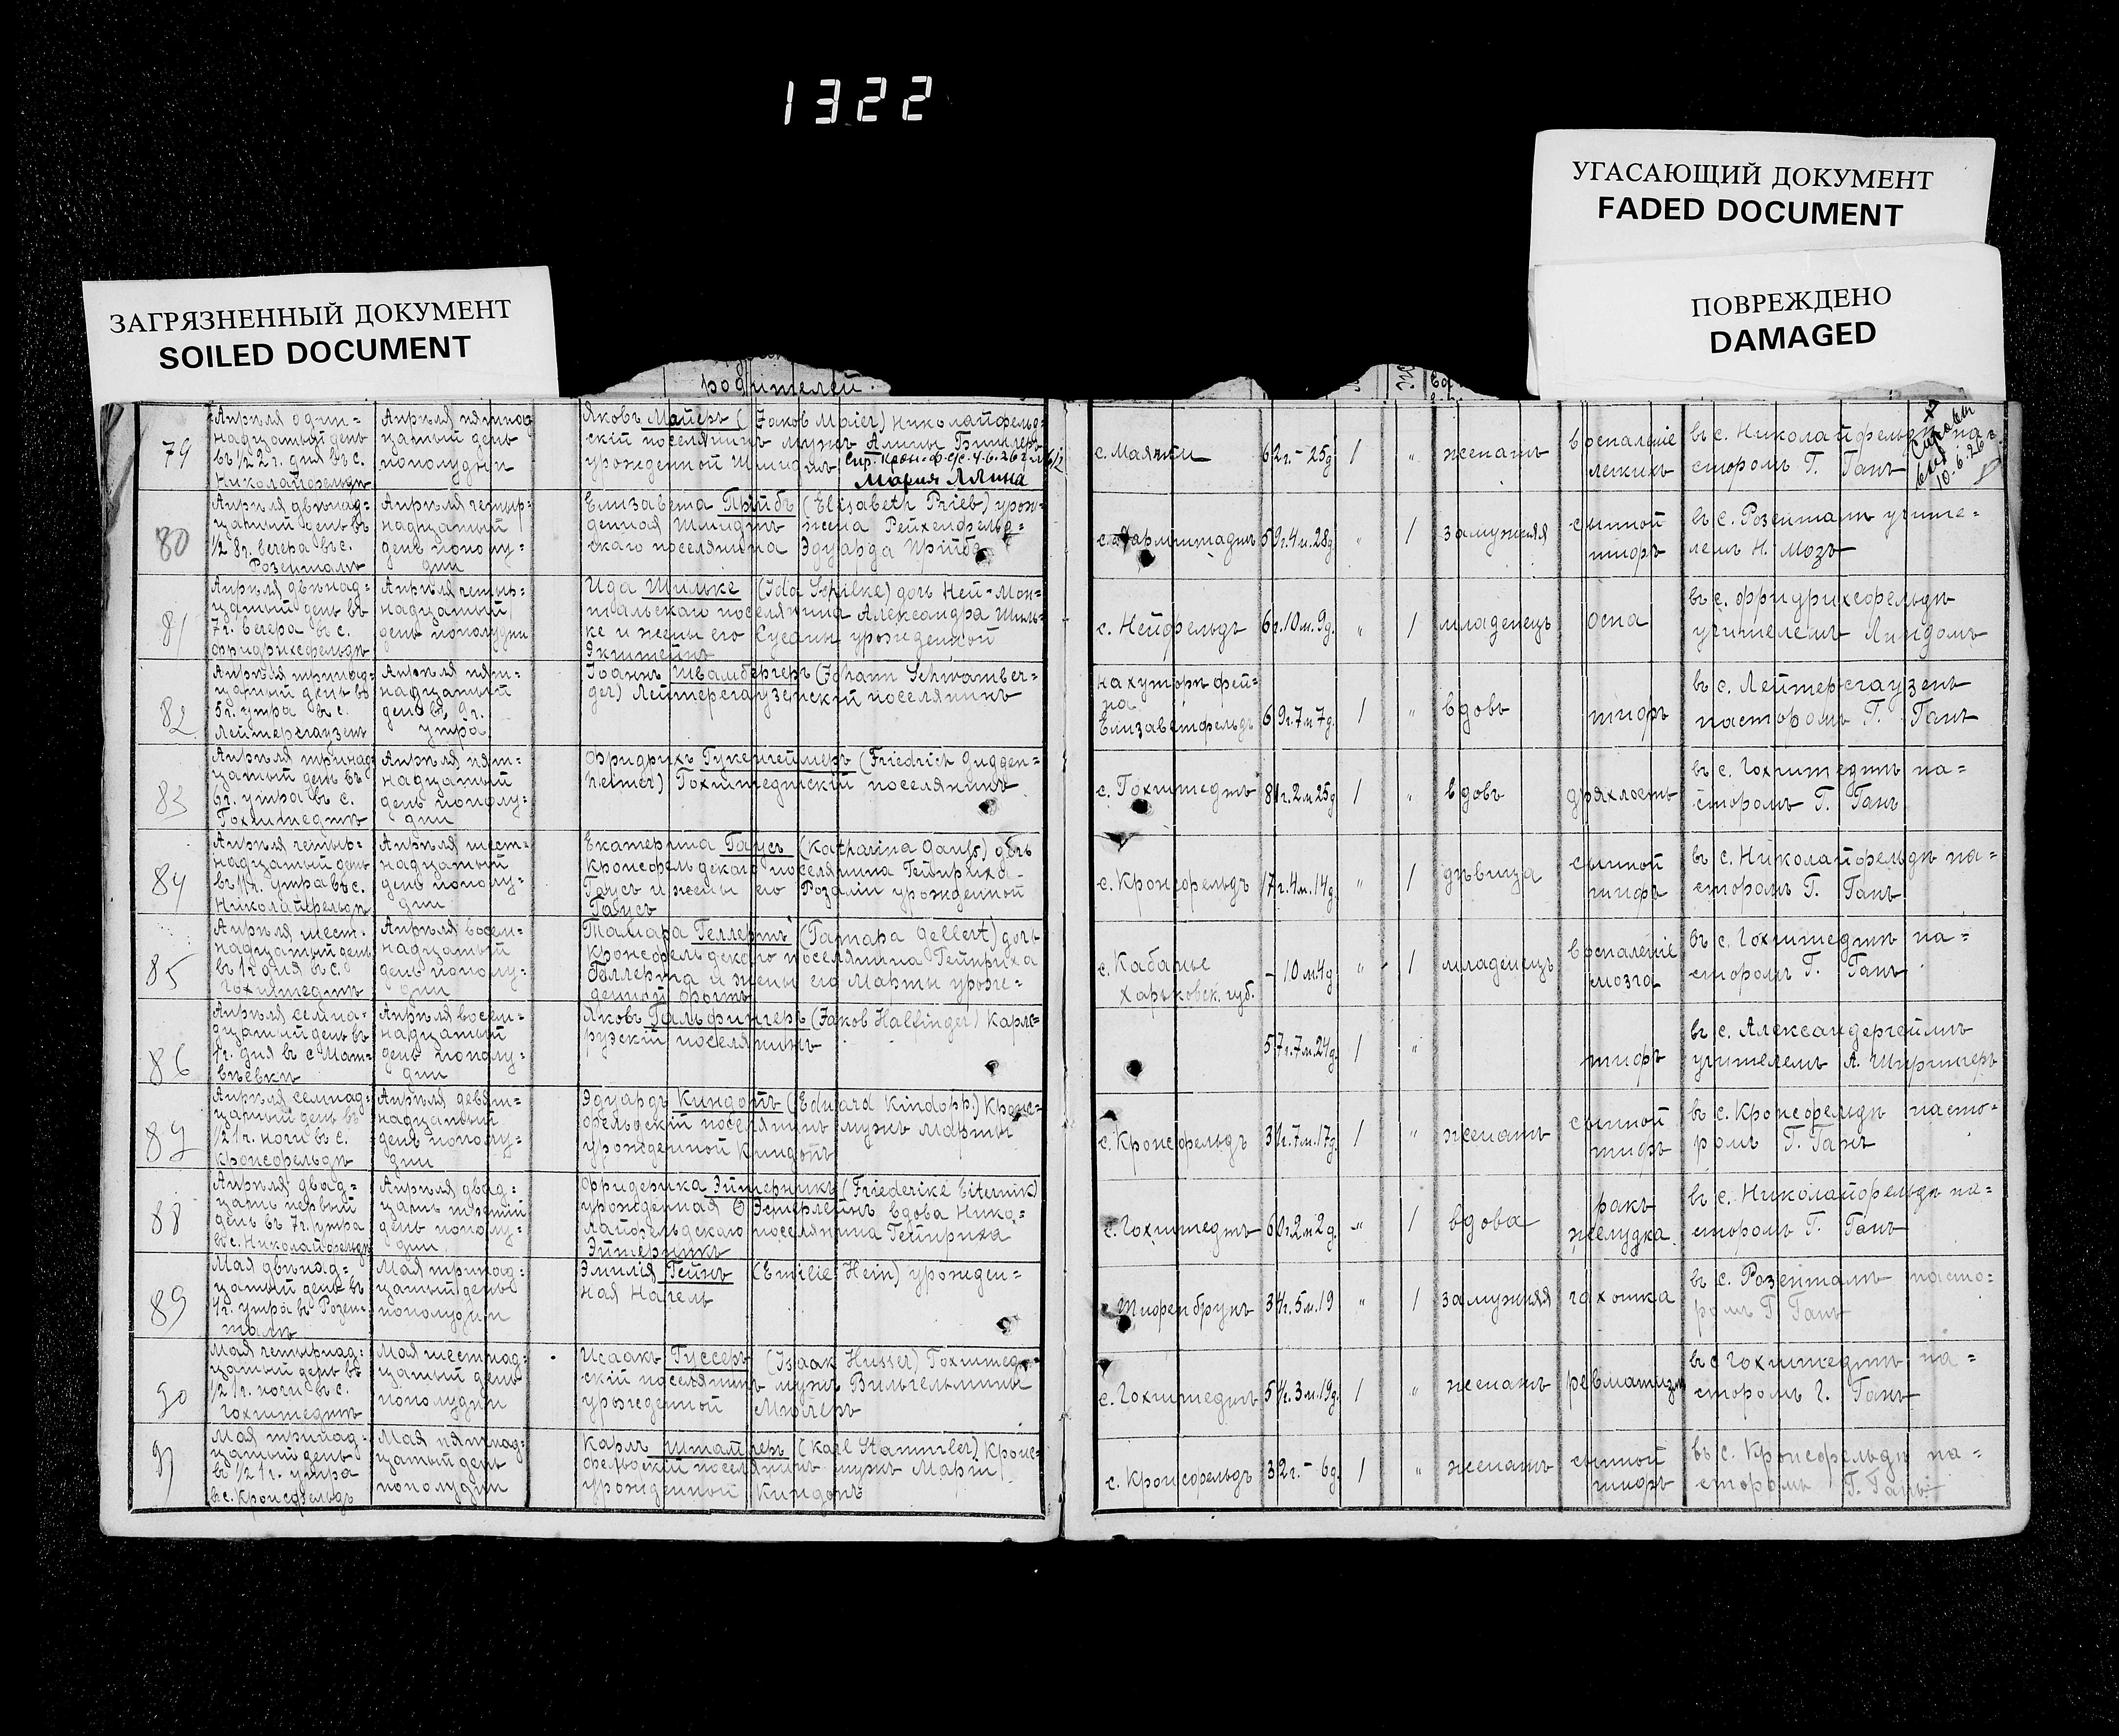 1322
УГАСАЮЩИЙ ДОКУМЕНТ
FADED DOCUMENT
ПОВРЕЖДЕНО
DAMAGED
ЗАГРЯЗНЕННЫЙ ДОКУМЕНТ
SOILED DOCUMENT
родителей.
79
Апрѣля один=
надцатый день
въ 1/2 2 г. дня въ с.
Николайфельдѣ
Апрѣля пятнад
цатый день
пополудни
Яковъ Майеръ (Jakob Maier) Николайфельд=
скій поселянинъ мужъ Алины
урожденной Шмидтъ
Мария Алина
с. Маяки
62 г. - 25 д
1
"
женатъ
воспаленіе
легкихъ
въ с. Николайфельдѣ па=
сторомъ Г. Ганъ
10.6.26 г.
80
Апрѣля двѣнад=
цатый день въ
1/2 8 г. вечера въ с.
Розенталѣ
Апрѣля четыр=
надцатый
день пополу=
дни
Елизавета Прійбъ (Elisabeth Prieb) урож=
денная Шмидтъ жена Рейхенфельд=
скаго поселянина Эдуарда Прійбъ
59 г. 4 м. 28 д
"
1
замужняя
сыпной
тифъ
въ с. Розенталѣ учите=
лемъ Н. Мозъ
81
Апрѣля двѣнад=
цатый день въ
7 г. вечера въ с.
Фридрихсфельдѣ
Апрѣля четыр=
надцатый
день пополудни
Ида Шильке (Ida Schilke) дочь Ней-Мон=
тальскаго поселянина Александра Шиль=
ке и жены его Сусанны урожденной
Экштейнъ
с. Нейфельдъ
6 г. 10 м. 9 д.
"
1
младенецъ
оспа
въ с. Фридрихсфельдѣ
учителемъ Линдомъ
82
Апрѣля тринад=
цатый день въ
5 г. утра въ с.
Лейтерсгаузенъ
Апрѣля пят=
надцатый
день въ 9 г.
утра
Іоаннъ Швамбергеръ (Johann Schwamber=
ger) Лейтерсгаузенскій поселянинъ
на хуторѣ Фей=
на
Елизаветфельдъ
69 г. 7 м 7 д.
1
"
вдовъ
тифъ
въ с. Лейтерсгаузенъ
пасторомъ Г. Ганъ
83
Апрѣля тринад
цатый день въ
6 г. утра въ с.
Гохштедтѣ
Апрѣля пят=
надцатый
день пополу=
дни
Фридрихъ Гукенгеймеръ (Friedrich Guggen=
heimer) Гохштедтскій поселянинъ
с. Гохштедтъ
81 г. 2 м 25 д
1
"
вдовъ
дряхлость
въ с. Гохштедтѣ па=
сторомъ Г. Ганъ
84
Апрѣля четыр=
надцатый день
въ 11 г. утра въ с.
Николайфельдѣ
Апрѣля шест=
надцатый
день пополу=
дни
Екатерина Гаусъ (Katharina Gauss) дочь
Кронсфельдскаго поселянина Гейнриха
Гаусъ и жены его Розаліи урожденной
Гаусъ
с. Кронсфельдъ
17 г. 4 м. 14 д.
"
1
дѣвица
сыпной
тифъ
въ с. Николайфельдѣ па=
сторомъ Г. Ганъ
85
Апрѣля шест=
надцатый день
въ 1 г. дня въ с.
Гохштедтѣ
Апрѣля восем=
надцатый
день пополу=
дни
Тамара Геллертъ (Tamara Gellert) дочь
Кронсфельдскаго поселянина Гейнриха
Геллерта и жены его Марты урож=
денной Фогтъ
с. Кабанье
Харьковск. губ.
- 10 м. 4 д
"
1
младенецъ
воспаленіе
мозга
въ с. Гохштедтѣ па=
сторомъ Г. Ганъ
86
Апрѣля семна=
дцатый день въ
1 г. дня въ с. Мат=
вѣевкѣ
Апрѣля восем=
надцатый
день пополу=
дни
Яковъ Гальфингеръ (Jakob Halfinger) Карлс=
рузскій поселянинъ
57 г. 7 м. 24 д.
1
"
тифъ
въ с. Александергеймъ
учителемъ А. Ширшеръ
87
Апрѣля семнад=
цатый день въ
1/2 1 г. ночи въ с.
Кронсфельдѣ
Апрѣля девят=
надцатый
день пополу=
дни
Эдуардъ Киндопъ (Eduard Kindopp.) Кронс=
фельдскій поселянинъ мужъ Марты
урожденной Киндопъ
с. Кронсфельдъ
31 г. 7 м. 17 д.
1
"
женатъ
сыпной
тифъ
въ с. Кронсфельдѣ пасто=
ромъ Г. Ганъ
88
Апрѣля двад=
цать первый
день въ 7 г. утра
въ с. Николайфельдѣ
Апрѣля двад=
цать третій
день пополу=
дни
Фридерика Эйтерникъ (Friederike Eiternik)
урожденная Эстерлейнъ вдова Нико=
лайфельдскаго поселянина Гейнриха
Эйтерникъ
с. Гохштедтъ
60 г. 2 м. 2 д.
"
1
вдова
ракъ
желудка
въ с. Николайфельдѣ па=
сторомъ Г. Ганъ
89
Мая двѣнад=
цатый день въ
4 г. утра въ Розен=
талѣ
Мая тринад=
цатый день
пополудни
Эмилія Гейнъ (Emilie Hein) урожден=
ная Нагель
с. Тифенбрунъ
34 г. 5 м. 19
"
1
замужняя
чахотка
въ с. Розенталѣ пасто=
ромъ Г. Ганъ
90
Мая четырнад=
цатый день въ
1/2 1 г. ночи въ с.
Гохштедтѣ
Мая шестнад=
цатый день
пополудни
Исаакъ Гуссеръ (Isaak Husser) Гохштедт=
скій поселянинъ мужъ Вильгельмины
урожденной Мюллеръ
с. Гохштедтъ
54 г. 3 м. 19 д.
1
"
женатъ
ревматизмъ
въ с Гохштедтѣ па=
сторомъ Г. Ганъ
91
Мая тринад=
цатый день
въ 1/2 1 г. утра
въ с. Кронсфельдъ
Мая пятнад=
цатый день
пополудни
Карлъ Штамлеръ (Karl Stammler) Кронс=
фельдскій поселянинъ мужъ Маріи
урожденной Киндопъ
с. Кронсфельдъ
32 г. - 6 д.
1
"
женатъ
сыпной
тифъ
въ с. Кронсфельдѣ па=
сторомъ Г. Ганъ